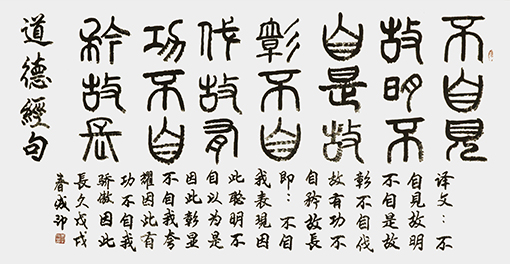 不自見
故明不
自是故
彰不自
伐故有
功不自
矜故長
道德經句
译文：不
自見故明
不自是故
彰不自伐
故有功不
自矜故長
即：不自
我表現因
此聪明不
自以為是
因此彰显
不自我夸
耀因此有
功不自我
骄傲因此
長久戊戌
春成